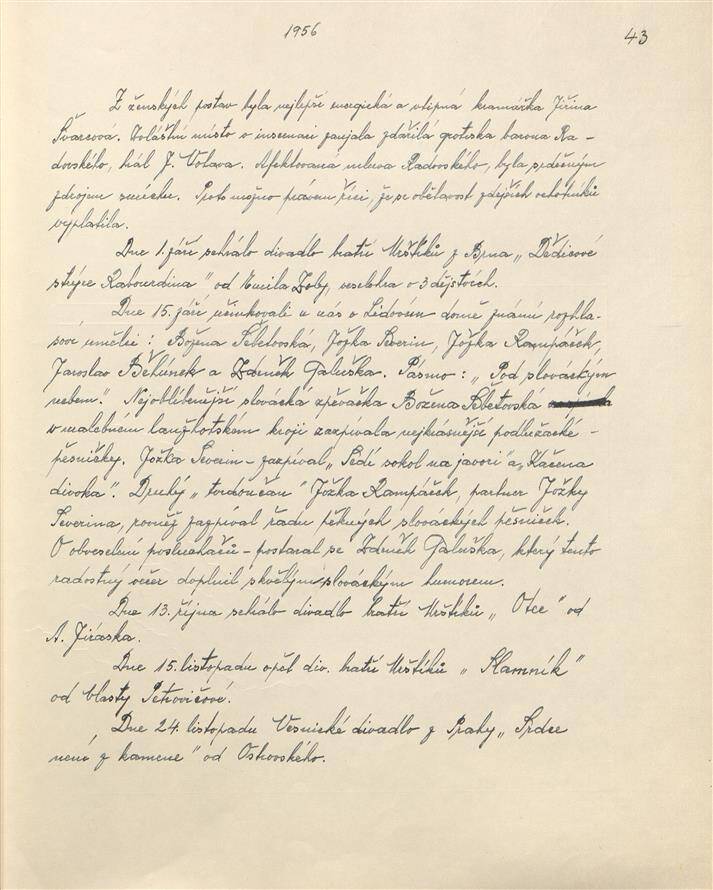 1956
43
Z ženských postav byla nejlepší energická a vtipná kramářka Jiřina
Švarcová. Zvláštní místo v inscenaci zaujala zdařilá groteska barona Ra-
dovského, hál J. Votava. Afektovaná mluva Radovského, byla srdečným
zdrojem smíchu. Proto možno právem říci, že se obětavost zdejších ochotníků
vyplatila.
Dne 1. září sehrálo divadlo bratří Mrštíků z Brna „Dědicové
strýce Rabourdina" od Emila Zoly, veselohra o 3 dějstvích.
Dne 15. září účinkovali u nás v Lidovém domě známí rozhla-
soví umělci: Božena Šebetovská, Jožka Severin, Jožka Rampáček,
Jaroslav Běhúnek a Zdeněk Galuška. Pásmo: „Pod slováckým
nebem." Nejoblíbenější slovácká zpěvačka Božena Šebetovská
v malebném lanžhotském kroji zazpívala nejkrásnější podlužácké -
pěsničky. Jožka Severin - zazpíval „Sedí sokol na javori" a „Kačena
divoká". Druhý „tvrdoňčan" Jožka Rampáček, partner Jožky
Severina, rovněž zazpíval řadu pěkných slováckých pěsniček.
O obveselení posluchačů - postaral se Zdeněk Galuška, který tento
radostný večer doplnil skvělým slováckým humorem.
Dne 13. října sehrálo divadlo bratří Mrštíků „Otec" od
A. Jiráska.
Dne 15. listopadu opět div. bratří Mrštíků „Slamník"
od Vlasty Petrovičové.
Dne 24. listopadu Vesnické divadlo z Prahy „Srdce
není z kamene" od Ostrovského.